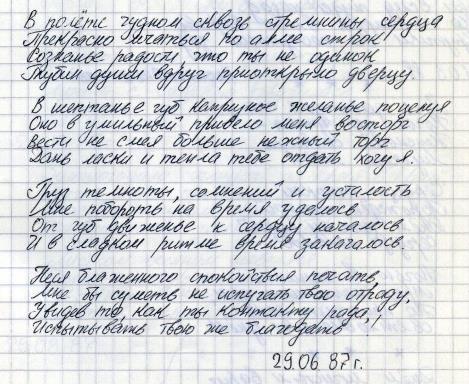 В полёте чудном сквозь стремнины сердца
Прекрасно мчаться по аллее строк
Сознанье радости, что ты не одинок
Глубин души вдруг приоткрыло дверцу.
В шептанье губ капризное желанье поцелуя
Оно в умильный привело меня восторг
Вести не смея больше нежный торг
Дань ласки и тепла тебе отдать хочу я.
Груз темноты, сомнений и усталость
Мне побороть на время удалось
От губ движенье к сердцу началось
И в сладком ритме время закачалось.
Неся блаженного спокойствия печать,
Мне бы суметь не испугать твою отраду,
Увидев то, как ты контакту рада,
Испытывать твою же благодать
29.06.87 г.